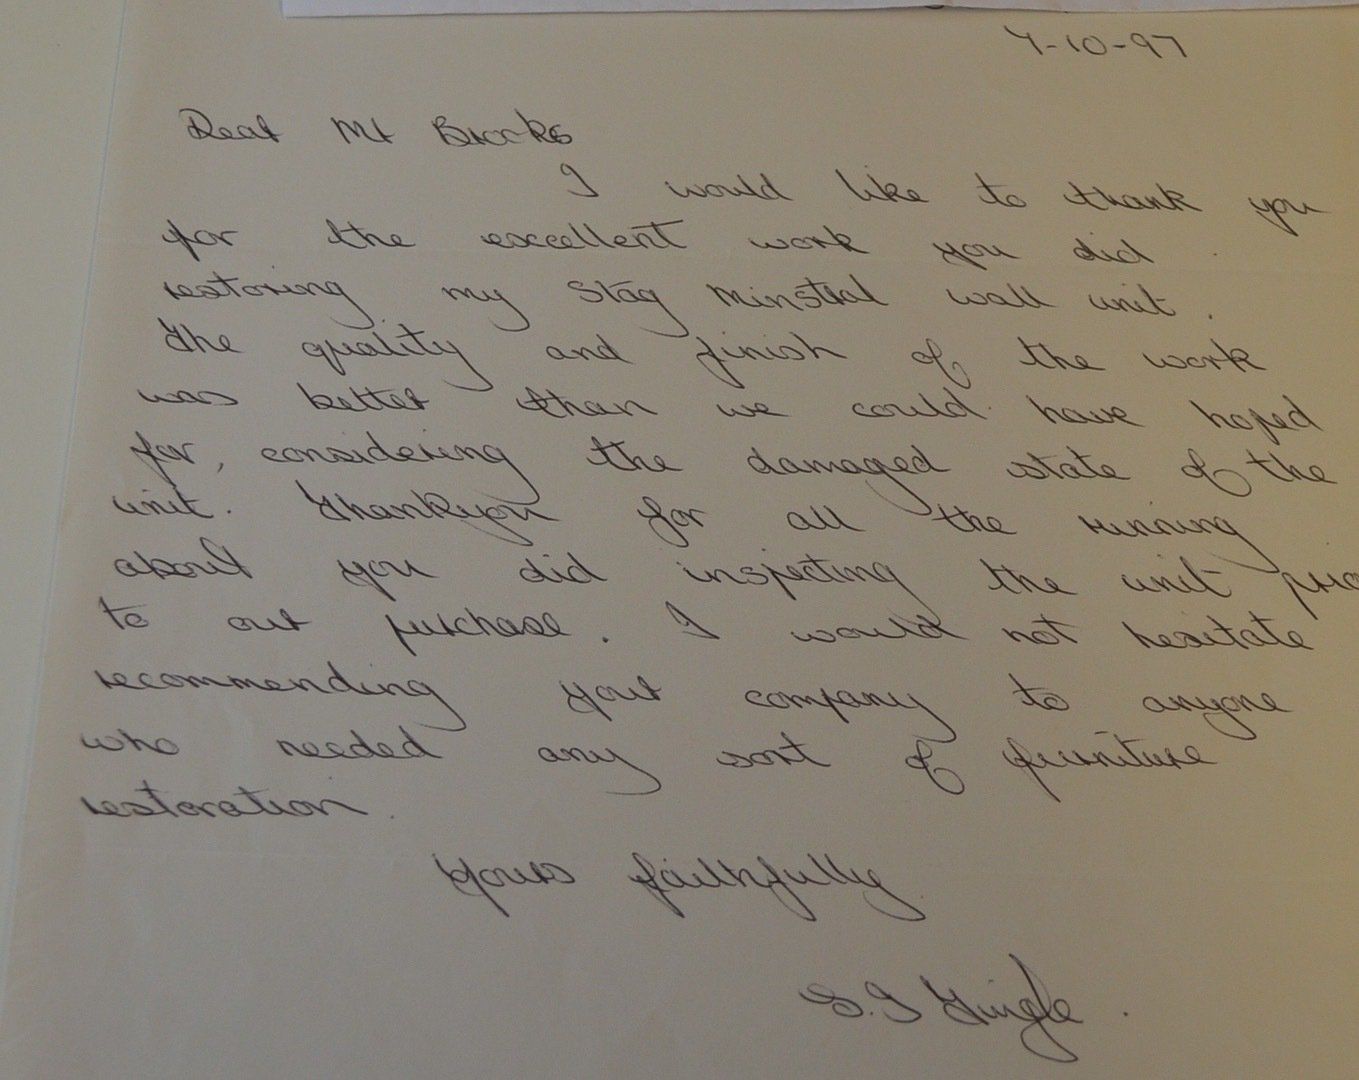 7-10-97
Dear Mr Brooks
I would like to thank you
for the excellent work you did
restoring my Stag Minstral wall unit.
The quality and finish of the work
was better than we could have hoped
for, considering the damaged state of the
unit. Thankyou for all the running
about you did inspecting the unit prio
to our purchase. I would not hesitate
recommending your company to anyone
who needed any sort of furniture
restoration.
Yours faithfully
S.J